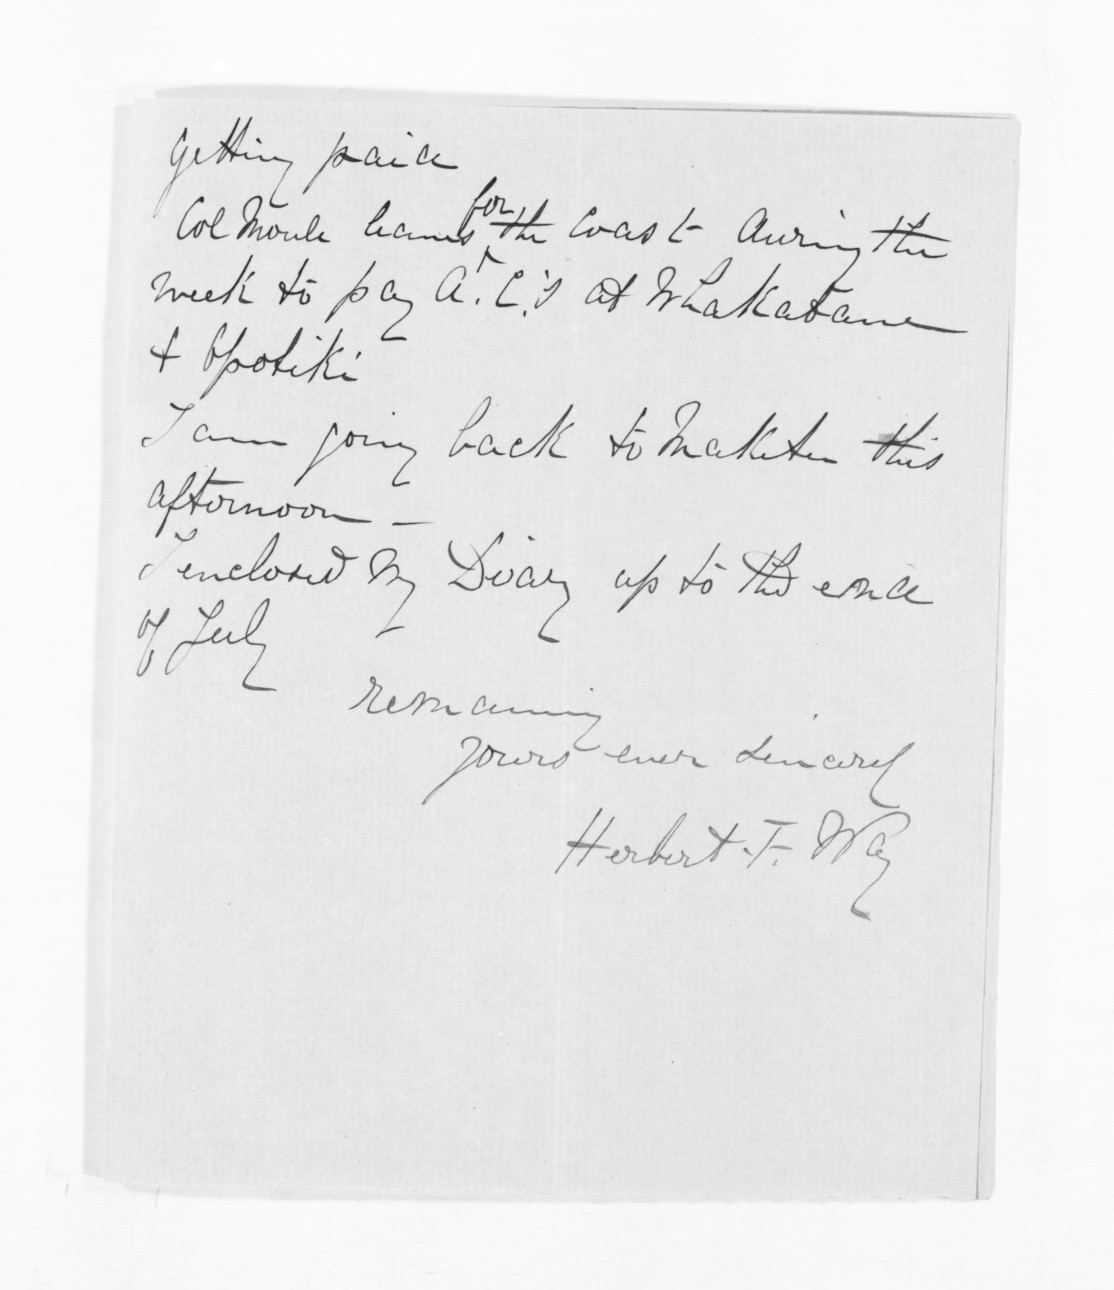 getting paid
Col Moule leaves for the Coast during the
week to pay A. C.'s at Whakatane
& Opotiki
I am going back to Maketu this
afternoon —
I enclosed my Diary up to the end
of July
remaining
yours ever sincerely
Herbert. F. Way